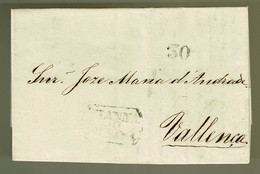 30
Snr. Joze Maria d'Andrade
Vallença